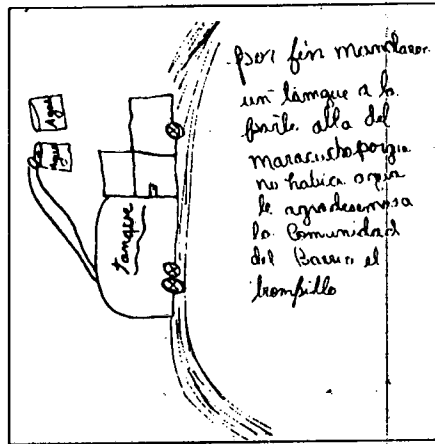 por fin mandaron
un tamque a la
parte alla del
maracucho porque
no habia agua
le agradesemosa
la Comunidad
del Barrio el
trompillo
tanque
Agua
Agua